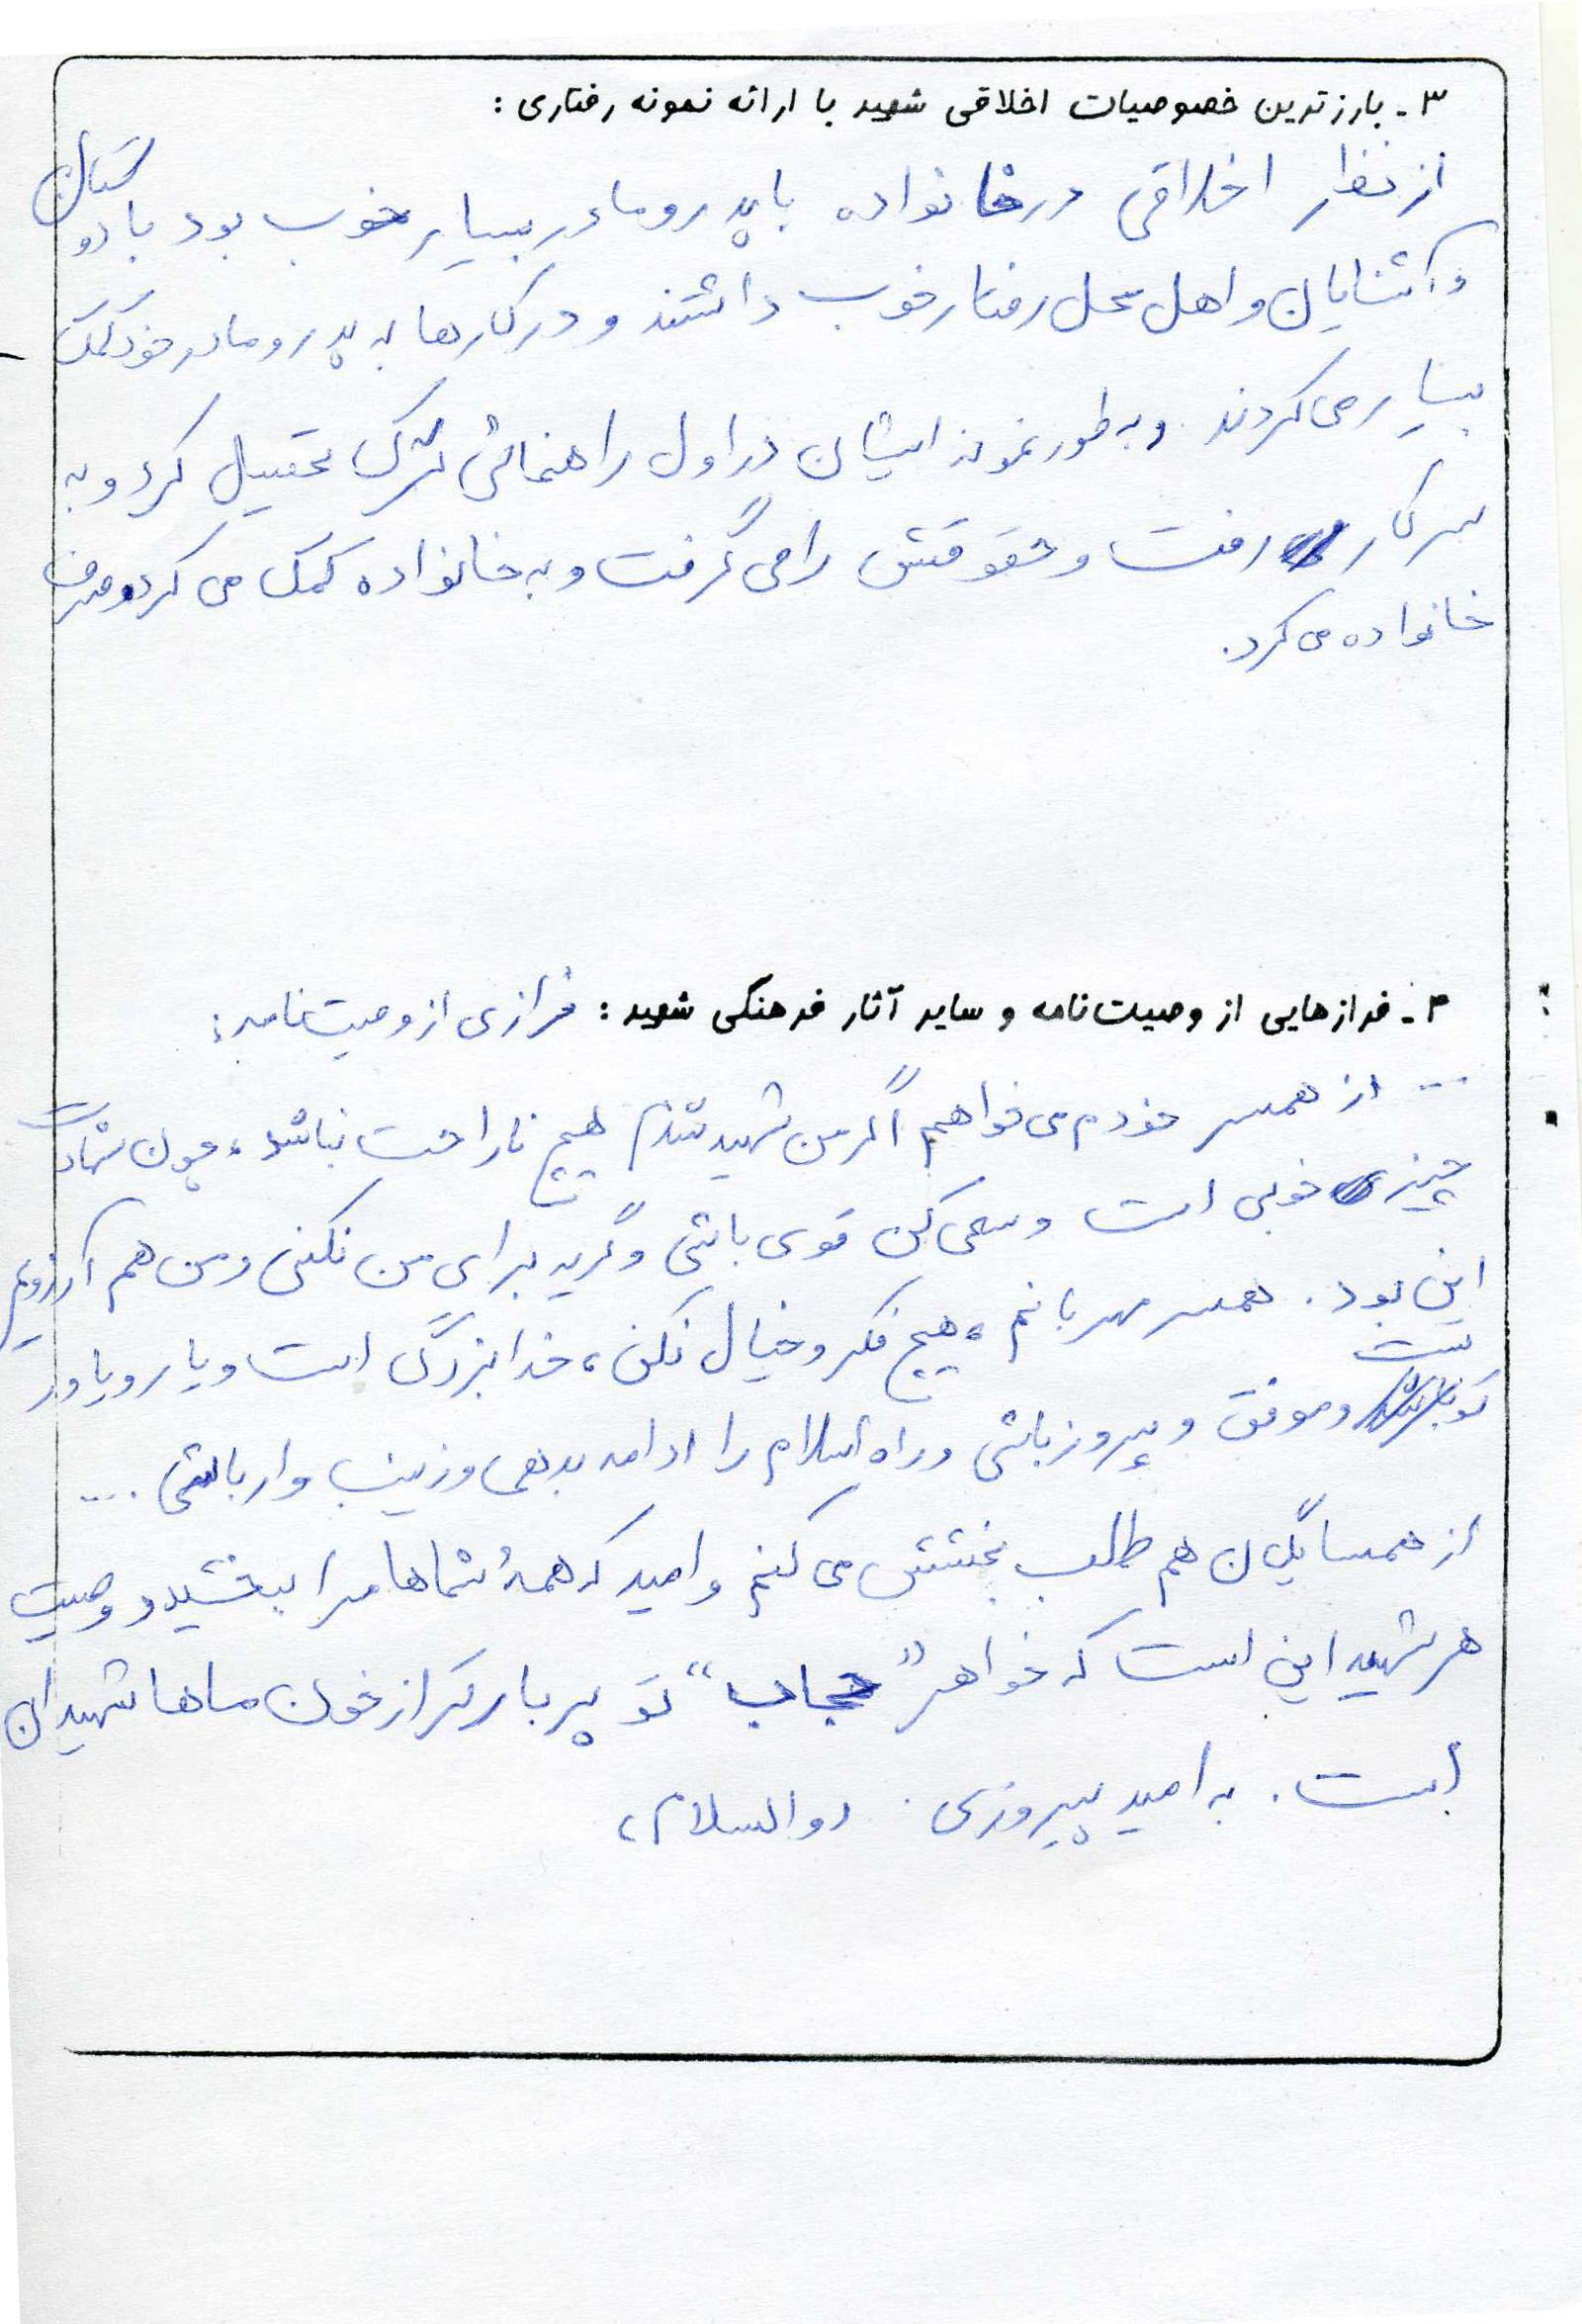 ۳- بارزترین خصوصیات اخلاقی شهید با ارائه نمونه رفتاری:
از نظر اخلاقی در خانواده با پدر و مادر بسیار خوب بود با دوستان
و آشنایان و اهل محل رفتار خوب داشتند و در کارها به پدر و مادر خود کمک
بسیار می کردند و به طور نمونه ایشان در اول راهنمائی ترک تحصیل کرد و به
سر کار رفت و حقوقش را می گرفت و به خانواده کمک می کرد و صرف
خانواده می کرد.
۴- فرازهایی از وصیت‌نامه و سایر آثار فرهنگی شهید: فرازی از وصیت نامه:
... از همسر خودم می خواهم اگر من شهید شدم هیچ ناراحت نباشد، چون شهادت
چیز خوبی است و سعی کن قوی باشی و گریه برای من نکنی و من هم آرزویم
این بود. همسر مهربانم، هیچ فکر و خیال نکن، خدا بزرگ است و یار و یاور
توست و موفق و پیروز باشی و راه اسلام را ادامه بدهی و زینب وار باشی ...
از همسایگان هم طلب بخشش می کنم و امید که همهٔ شماها مرا ببخشید و وصیت
هر شهید این است که خواهر "حجاب" تو پربارتر از خون ماها شهیدان
است. به امید پیروزی. والسلام،